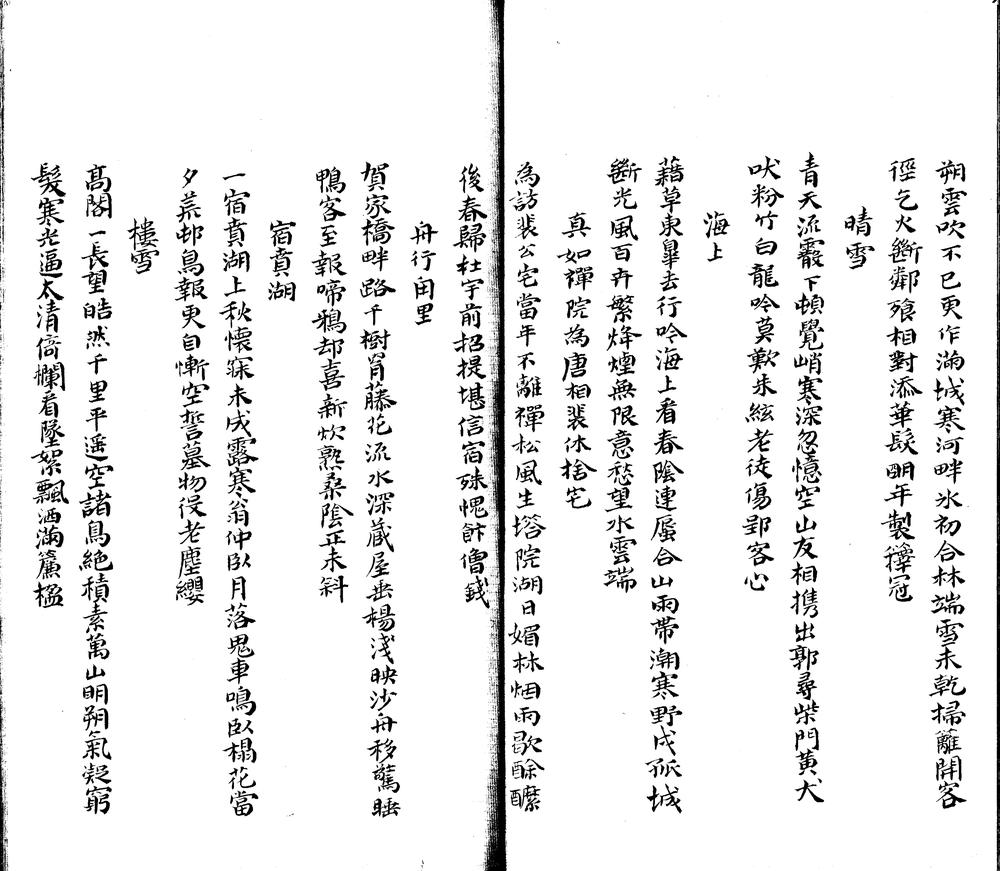 朔雲吹不已更作滿城寒河畔氷初合林端雪未乾掃籬開客
徑乞火斷鄰飱相對添華髮明年製籜冠
晴雪
青天流霰下頓覺峭寒深忽憶空山友相携出郭尋柴門黃犬
吠粉竹白龍吟莫歎朱絃老徒傷郢客心
海上
藉草東臯去行吟海上看春陰連蜃合山雨帶潮寒野戍孤城
斷光風百卉繁烽煙無限意愁望水雲端
真如禪院為唐相裴休捨宅
為訪裴公宅當年不離禪松風生塔院湖日媚林烟雨歇酴醿
後春歸杜宇前招提堪信宿殊愧飰僧錢
舟行用里
賀家橋畔路千樹胃藤花流水深藏屋垂楊淺映沙舟移驚睡
鴨客至報啼鴉却喜新炊熟桑陰正未斜
宿賁湖
一宿賁湖上秋懷寐未成露寒翁仲臥月落鬼車鳴臥榻花當
夕荒邨鳥報更自慚空誓墓物役老塵纓
樓雪
髙閣一長望皓然千里平遥空諸鳥絶積素萬山明朔氣凝窮
髮寒光逼太清倚欄看墜絮飄洒滿簾楹